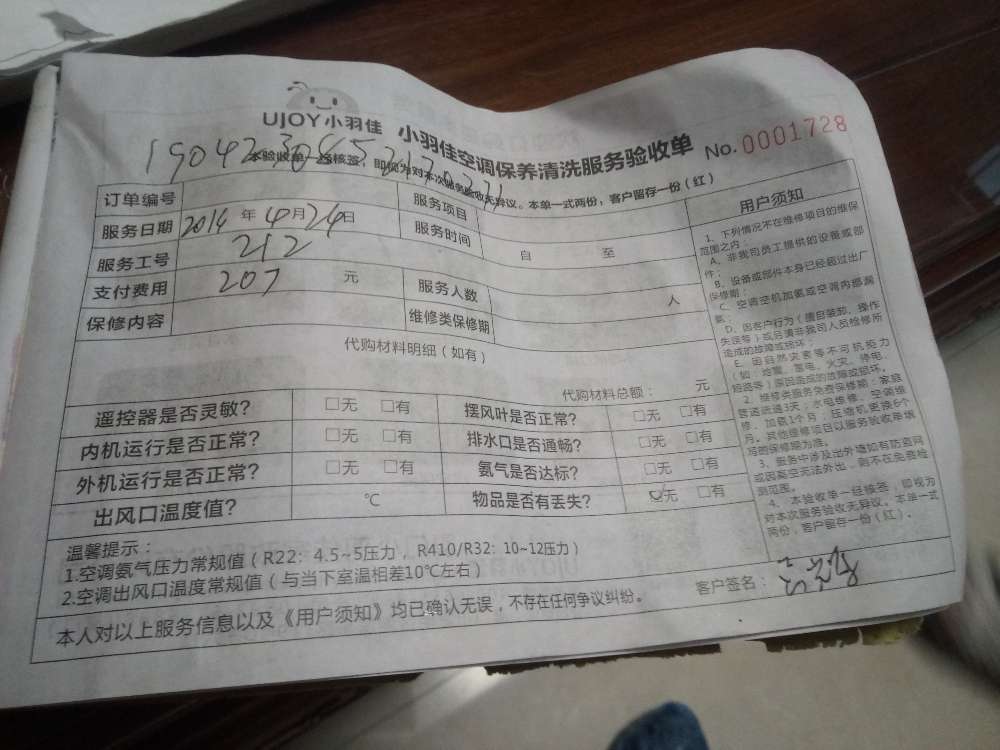 UJOY小羽佳 小羽佳空调保养清洗服务验收单 No.0001728
本验收单一经核签，即视为对本次服务验收无异议。本单一式两份，客户留存一份（红）
订单编号 服务项目
服务日期 年 4月24日 服务时间 自 至
服务工号 212
支付费用 207 元 服务人数 人
保修内容 维修类保修期
代购材料明细（如有）
代购材料总额： 元
遥控器是否灵敏？ □无 □有 摆风叶是否正常？ □无 □有
内机运行是否正常？ □无 □有 排水口是否通畅？ □无 □有
外机运行是否正常？ □无 □有 氨气是否达标？ □无 □有
出风口温度值？ ℃ 物品是否有丢失？ ☑无 □有
温馨提示：
1.空调氨气压力常规值（R22：4.5~5压力，R410/R32：10~12压力）
2.空调出风口温度常规值（与当下室温相差10℃左右）
本人对以上服务信息以及《用户须知》均已确认无误，不存在任何争议纠纷。
客户签名：
用户须知
1、下列情况不在维修项目的维保
范围之内：
A、非我司员工提供的设备或部
件；
B、设备或部件本身已经超过出厂
保修期；
C、空调空机加氨或空调内部漏
氨；
D、因客户行为（擅自装卸、操作
失误等）或另请非我司人员检修所
造成的故障或损坏；
E、因自然灾害等不可抗拒力
（如：地震、雷电、火灾、停电、
短路等）原因造成的故障或损坏。
2、维修类服务免费保修期：家庭
管道疏通3天，水电维修、空调维
修、加氨1个月；压缩机更换6个
月。其他维修项目以服务验收单填
写的保修期为准。
3、服务中涉及出外墙如有防盗网
或因高空无法外出，则不在免费检
测范围。
4、本验收单一经核签，即视为
对本次服务验收无异议。本单一式
两份，客户留存一份（红）。